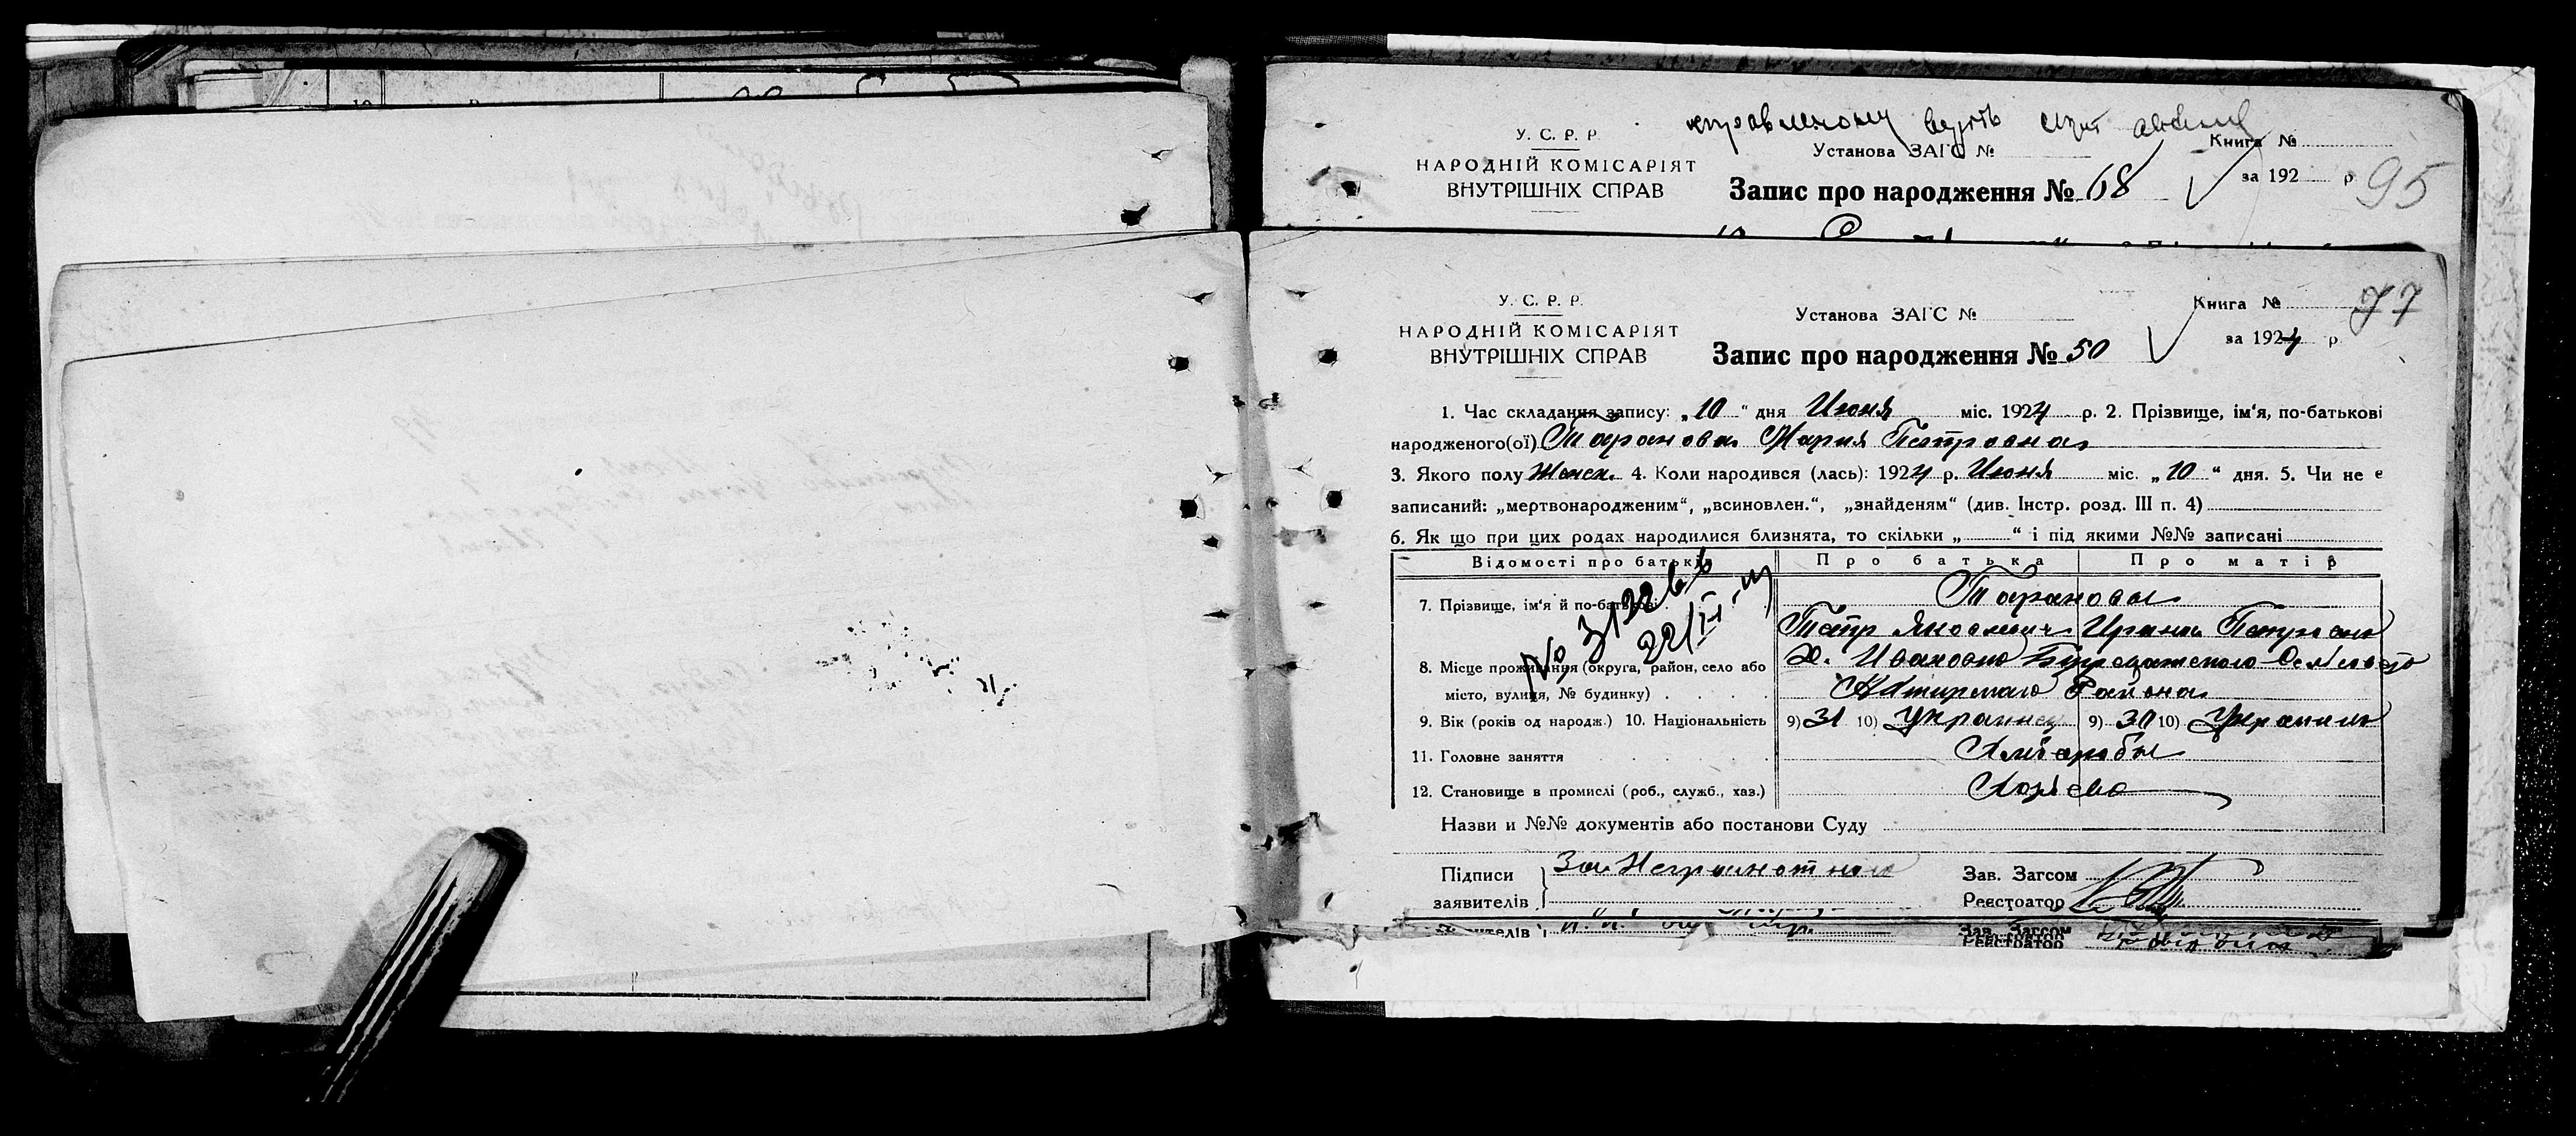 У. С. Р. Р
НАРОДНІЙ КОМІСАРІЯТ
ВНУТРІШНІХ СПРАВ
Установа ЗАГС №
Запис про народження № 68
Книга №
за 192 р
95
У. С. Р. Р.
НАРОДНІЙ КОМІСАРІЯТ
ВНУТРІШНІХ СПРАВ
Установа ЗАГС №
Запис про народження № 50
Книга №
за 1924 р
77
1. Час складання запису: „10“ дня Июня міс. 1924 р. 2. Прізвище, ім‘я, по-батькові
народженого(ої) Таранова Мария Петровна
3. Якого полу Женск. 4. Коли народився (лась): 1924 р. Июня міс. „10“ дня. 5. Чи не є
записаний: „мертвонародженим“, „всиновлен.“, „знайденям“ (див. Інстр. розд. III п. 4)
6. Як що при цих родах народилися близнята, то скільки „ “ і під якими №№ записані
Відомості про батьків Про батька Про матір
7. Прізвище, ім‘я й по-батькові Тарановы
Петр Яковлевич
8. Місце проживання (округа, район, село або Х.
місто, вулиця, № будинку) Района
9. Вік (років од народж.) 10. Національність 9) 31 10) Украинец 9) 30 10)
11. Головне заняття Хлеборобы
12. Становище в промислі (роб., служб., хаз.) Хозяева
Назви и №№ документів або постанови Суду
Підписи
заявителів За Неграмотного
Зав. Загсом
Реєстратор
Зав. Загсом
Реєстратор